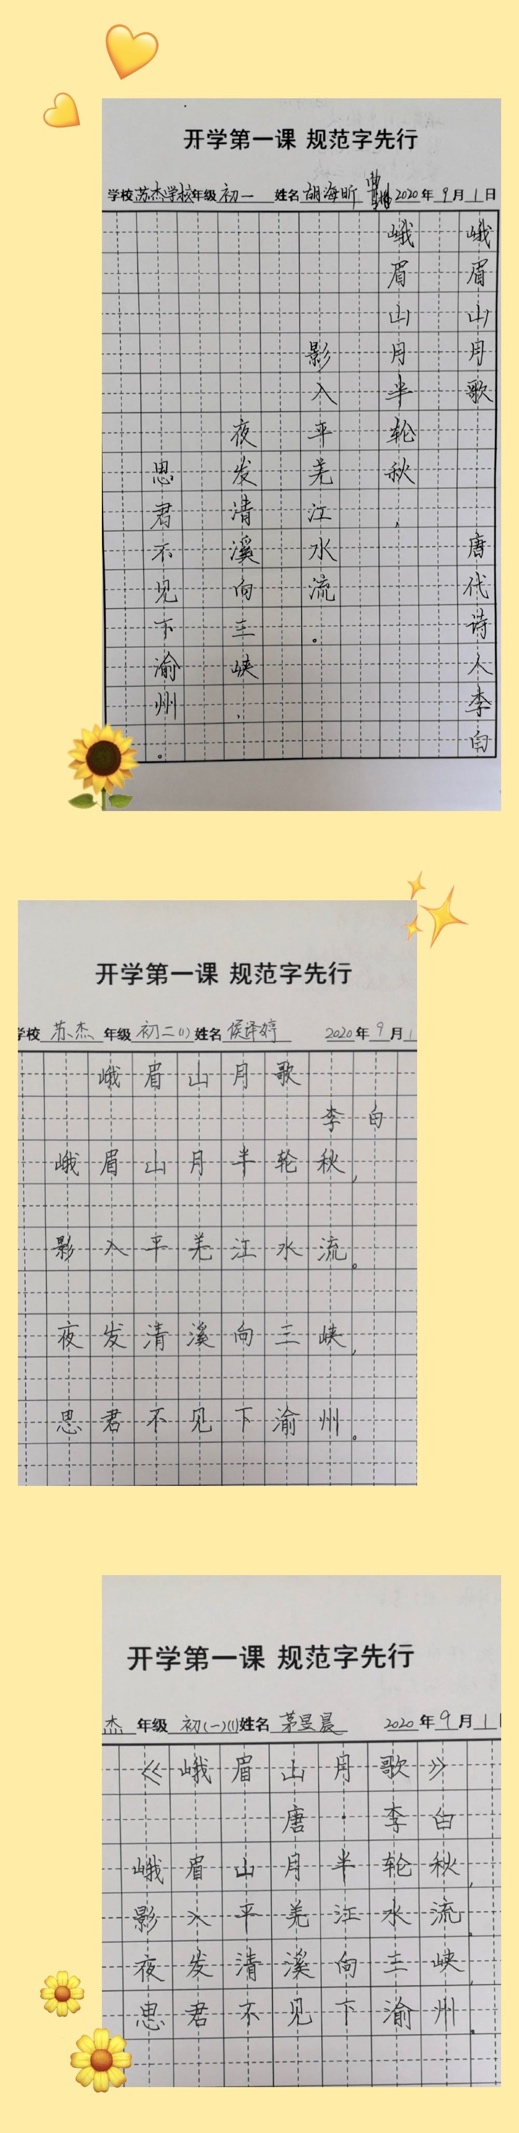 开学第一课 规范字先行
学校 苏杰学校 年级 初一 姓名 胡海昕 2020年9月1日
峨眉山月歌 唐代诗人李白
峨眉山月半轮秋，
影入平羌江水流。
夜发清溪向三峡，
思君不见下渝州。
开学第一课 规范字先行
学校 苏杰 年级 初二(1) 姓名 侯译婷 2020年9月1
峨眉山月歌
李白
峨眉山月半轮秋，
影入平羌江水流。
夜发清溪向三峡，
思君不见下渝州。
开学第一课 规范字先行
杰 年级 初(一)(1) 姓名 茅昱晨 2020年9月1
《峨眉山月歌》
唐·李白
峨眉山月半轮秋，
影入平羌江水流。
夜发清溪向三峡，
思君不见下渝州。